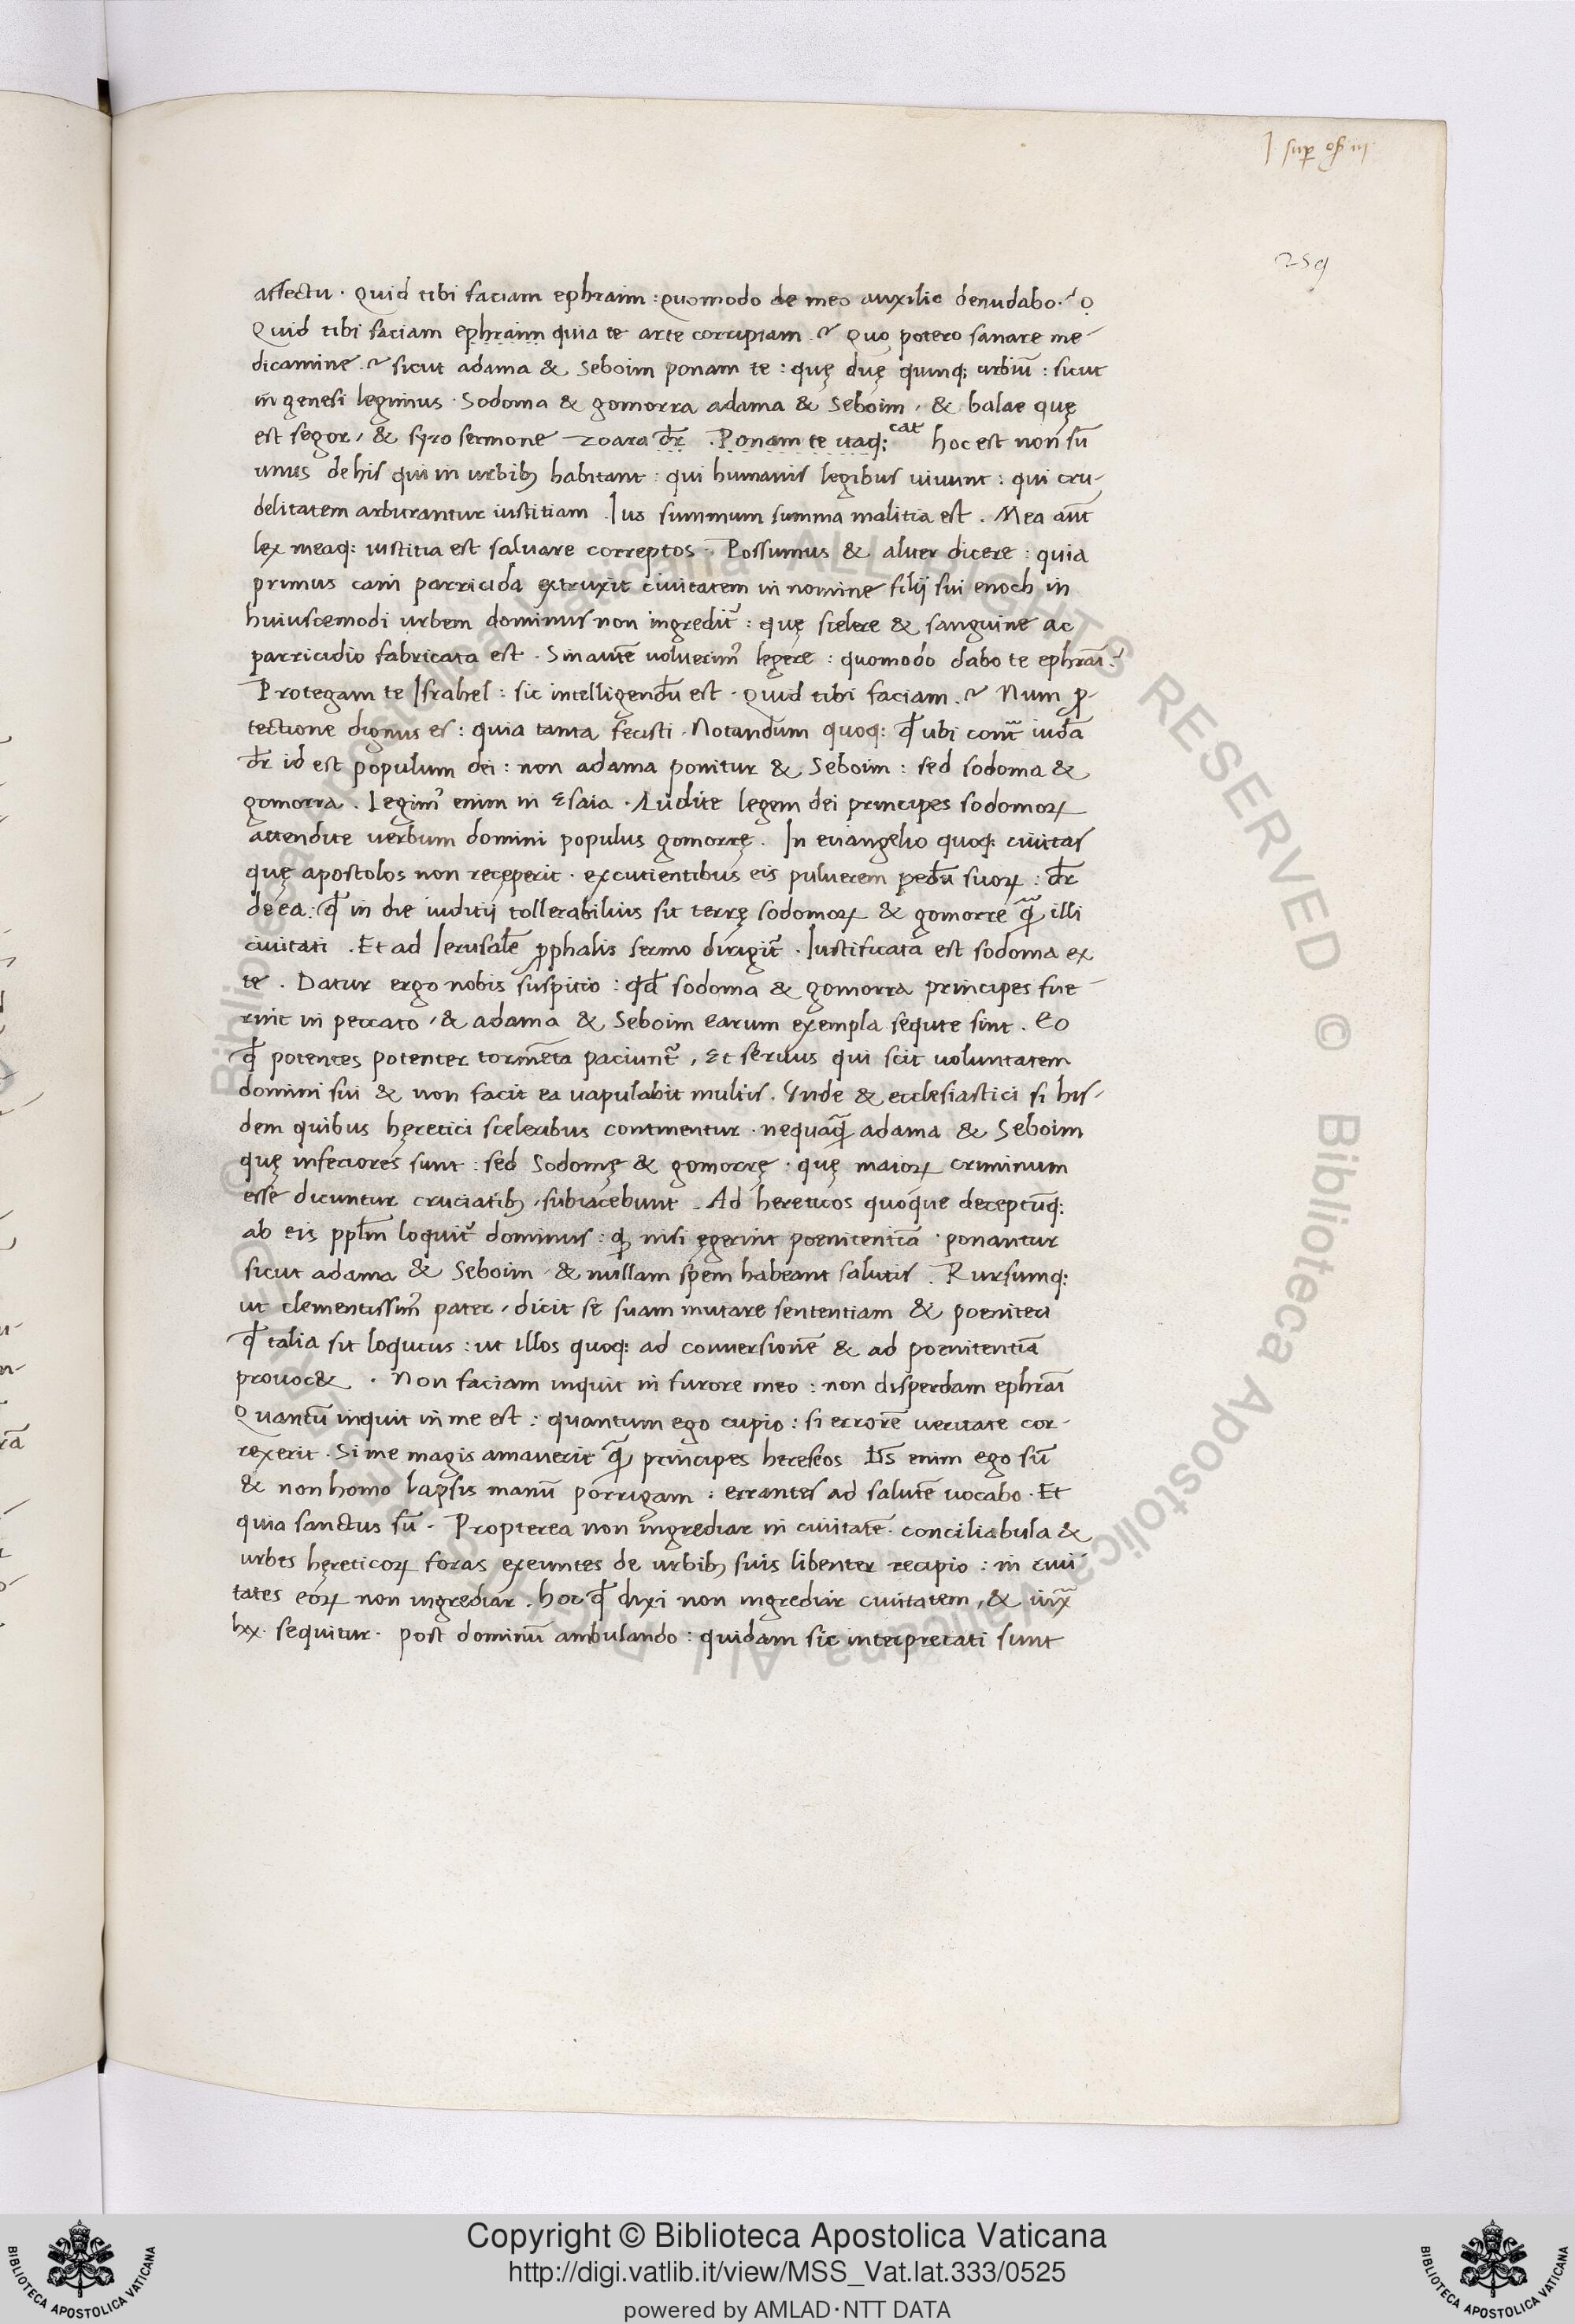 J sup̄ os̄ iij
259
affectu · Quid tibi faciam ephraim : quomodo de meo auxilio denudabo · ? Q
Quid tibi faciam ephraim quia te arte corripiam . ? Quo potero sanare me-
dicamine . ? sicut adama & Seboim ponam te : quę duę quinq; urbiū : sicut
in genesi legimus · Sodoma & gomorra adama & Seboim , & balae quę
est segor , & syro sermone zoara dr̄ . Ponam te itaq; cat hoc est non sū
unus de his qui in urbib; habitant : qui humanis legibus uiuunt : qui cru-
delitatem arbitrantur iustitiam . Ius summum summa malitia est . Mea aūt
lex meaq; iustitia est saluare correptos · Possumus & aliter dicere : quia
primus cain parricida extruxit ciuitatem in nomine filij sui enoch in
huiuscemodi urbem dominus non ingredit᷑ : quę scelere & sanguine ac
parricidio fabricata est · Sin autē uoluerim᾽ legere : quomodo dabo te ephraī ?
Protegam te Israhel : sic intelligendū est · quid tibi faciam . ? Num ꝓ-
tectione dignus es : quia tanta fecisti . Notandum quoq; qđ ubi cont᷑ iudā
dr̄ id est populum dei : non adama ponitur & Seboim : sed sodoma &
gomorra . Legim᾽ enim in Esaia . Audite legem dei principes sodomoꝝ
attendite uerbum domini populus gomorrę . In euangelio quoq; ciuitas
quę apostolos non receperit · excutientibus eis puluerem pedū suoꝝ : dr̄
de ea : qđ in die iuditij tollerabilius sit terrę sodomoꝝ & gomorre q̄ illi
ciuitati . Et ad Ierusalē ꝓphalis sermo dirigit᷑ . Iustificata est sodoma ex
te . Datur ergo nobis suspitio : qđ sodoma & gomorra principes fue-
rint in peccato , & adama & Seboim earum exempla sequte sint . Eo
qđ potentes potenter tormēta paciunt᷑ , Et seruus qui scit uoluntatem
domini sui & non facit ea uapulabit multis . Vnde & ecclesiastici si his-
dem quibus hęretici sceleribus continentur · nequaq̄ adama & Seboim
quę inferiores sunt : sed Sodomę & gomorrę · quę maioꝝ criminum
esse dicuntur cruciatib; , subiacebunt . Ad hereticos quoque deceptūq;
ab eis pplm̄ loquit᷑ dominus : q; nisi ęgerint poenitentiā · ponantur
sicut adama & Seboim & nullam spem habeant salutis . Rursumq;
ut clementissim᾽ pater , dicit se suam mutare sententiam & poeniteri
qđ talia sit loqutus : ut illos quoq; ad conuersionē & ad poenitentiā
prouoc& . Non faciam inquit in furore meo : non disperdam ephraī
Quantū inquit in me est : quantum ego cupio : si errorē ueritate cor-
rexerit . Si me magis amauerit q̄ principes hereseos Ds̄ enim ego sū
& non homo lapsis manū porrigam : errantes ad salutē uocabo . Et
quia sanctus sū . Propterea non ingrediar in ciuitatē . conciliabula &
urbes hęreticoꝝ foras exeuntes de urbib; suis libenter recipio : in ciui
tates eoꝝ non ingrediar . hoc qđ dixi non ingrediar ciuitatem , & iux̄
lxx · sequitur · post dominū ambulando : quidam sic interpretati sunt
Copyright © Biblioteca Apostolica Vaticana
http://digi.vatlib.it/view/MSS_Vat.lat.333/0525
powered by AMLAD·NTT DATA